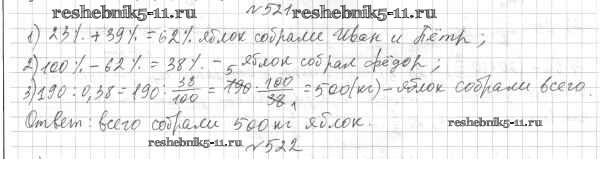 reshebnik5-11.ru №521 reshebnik5-11.ru
1) 23% + 39% = 62% яблок собрали Иван и Пётр;
2) 100% - 62% = 38% - яблок собрал Фёдор;
3) 190 : 0,38 = 190 : 38/100 = 5 190 · 100/38 1 = 500 (кг) - яблок собрали всего.
Ответ: всего собрали 500 кг яблок. reshebnik5-11.ru
reshebnik5-11.ru №522